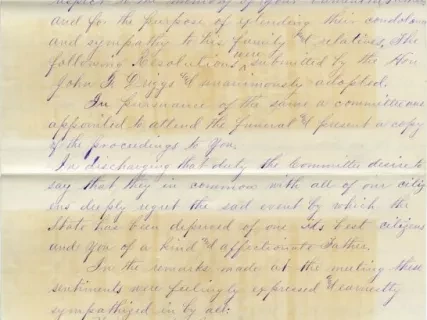 respect to the memory of your
and for the purpose of extending their condolence
and sympathy to his family & relatives. The
following Resolutions were submitted by the Hon
John F. Driggs & unanimously adopted.
In pursuance of the same a committee was
appointed to attend the funeral & present a copy
of the proceedings to you.
In discharging that duty the Committee desire to
say that they in common with all of our citiz
ens deeply regret the sad event by which the
State has been deprived of one its best citizens
and you of a kind & affectionate Father.
In the remarks made at the meeting these
sentiments were feelingly expressed & earnestly
sympathized in by all.